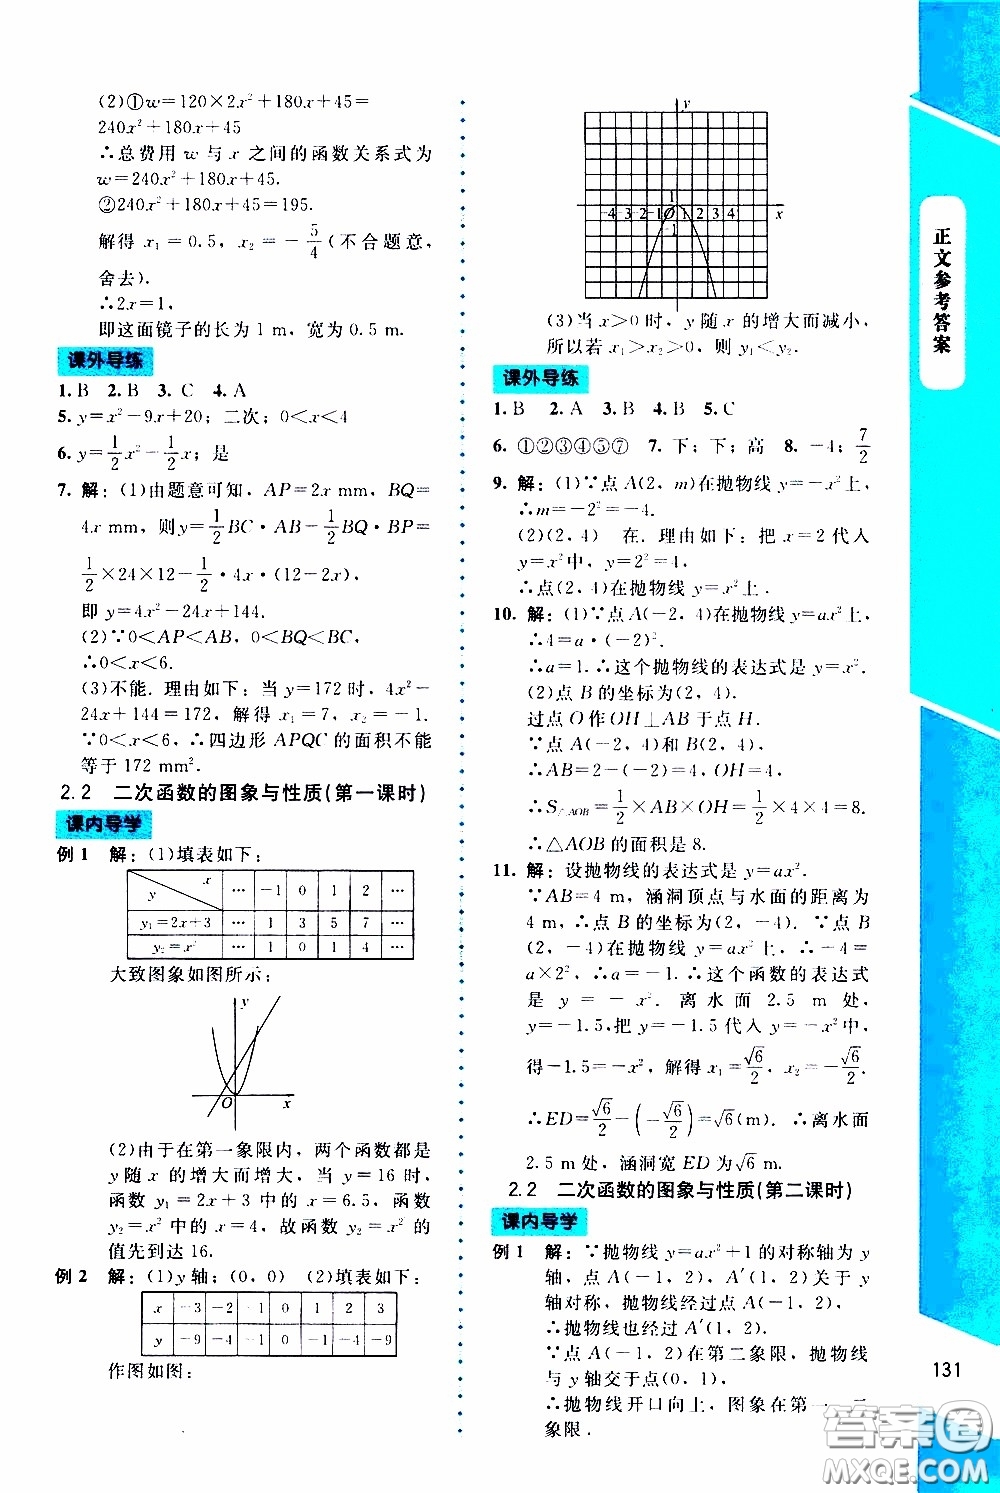 (2)①w=120×2x²+180x+45=
240x²+180x+45
∴总费用 w 与 x 之间的函数关系式为
w=240x²+180x+45.
②240x²+180x+45=195.
解得 x₁=0.5, x₂=-5/4(不合题意,
舍去).
∴2x=1,
即这面镜子的长为 1 m,宽为 0.5 m.
课外导练
1. B 2. B 3. C 4. A
5. y=x²-9x+20;二次;0<x<4
6. y=1/2x²-1/2x;是
7. 解:(1)由题意可知,AP=2x mm,BQ=
4x mm,则 y=1/2BC·AB-1/2BQ·BP=
1/2×24×12-1/2·4x·(12-2x),
即 y=4x²-24x+144.
(2)∵0<AP<AB,0<BQ<BC,
∴0<x<6.
(3)不能.理由如下:当 y=172 时,4x²-
24x+144=172,解得 x₁=7,x₂=-1.
∵0<x<6,∴四边形 APQC 的面积不能
等于 172 mm².
2.2 二次函数的图象与性质(第一课时)
课内导学
例 1 解:(1)填表如下:
x y … -1 0 1 2 …
y₁=2x+3 … 1 3 5 7 …
y₂=x² … 1 0 1 4 …
大致图象如图所示:
y
O x
(2)由于在第一象限内,两个函数都是
随 x 的增大而增大,当 y=16 时,
函数 y₁=2x+3 中的 x=6.5,函数
y₂=x² 中的 x=4,故函数 y₂=x² 的
值先到达 16.
例 2 解:(1)y 轴;(0,0) (2)填表如下:
x -3 -2 -1 0 1 2 3
y -9 -4 -1 0 -1 -4 -9
作图如图:
y
1
-4-3-2-1O 1 2 3 4 x
-1
(3)当 x>0 时,y 随 x 的增大而减小,
所以若 x₁>x₂>0,则 y₁<y₂.
课外导练
1. B 2. A 3. B 4. B 5. C
6. ①②③④⑤⑦ 7. 下;下;高 8. -4;7/2
9. 解:(1)∵点 A(2,m)在抛物线 y=-x²上,
∴m=-2²=-4.
(2)(2,4) 在.理由如下:把 x=2 代入
y=x²中,y=2²=4,
∴点(2,4)在抛物线 y=x²上.
10. 解:(1)∵点 A(-2,4)在抛物线 y=ax²上,
∴4=a·(-2)².
∴a=1.∴这个抛物线的表达式是 y=x².
(2)点 B 的坐标为(2,4).
过点 O 作 OH⊥AB 于点 H.
∵点 A(-2,4),B(2,4),
∴AB=2-(-2)=4,OH=4.
∴S△AOB=1/2×AB×OH=1/2×4×4=8.
∴△AOB 的面积是 8.
11. 解:设抛物线的表达式是 y=ax².
∵AB=4 m,涵洞顶点与水面的距离为
4 m,∴点 B 的坐标为(2,-4).∵点 B
(2,-4)在抛物线 y=ax²上,∴-4=
a×2²,∴a=-1,∴这个函数的表达式
是 y=-x².离水面 2.5 m 处,
y=-1.5,把 y=-1.5 代入 y=-x²中,
得-1.5=-x²,解得 x₁=√6/2,x₂=-√6/2.
∴ED=√6/2-(-√6/2)=√6(m).∴离水面
2.5 m处,涵洞宽 ED 为√6 m.
2.2 二次函数的图象与性质(第二课时)
课内导学
例 1 解:∵抛物线 y=ax²+1 的对称轴为 y
轴,点 A(-1,2),A′(1,2)关于 y
轴对称,抛物线经过点 A(-1,2),
∴抛物线也经过点 A′(1,2).
∵点 A(-1,2)在第二象限,抛物线
与 y 轴交于点(0,1),
∴抛物线开口向上,图象在第一、二
象限.
正文参考答案
131
答案圈
MXQE.COM